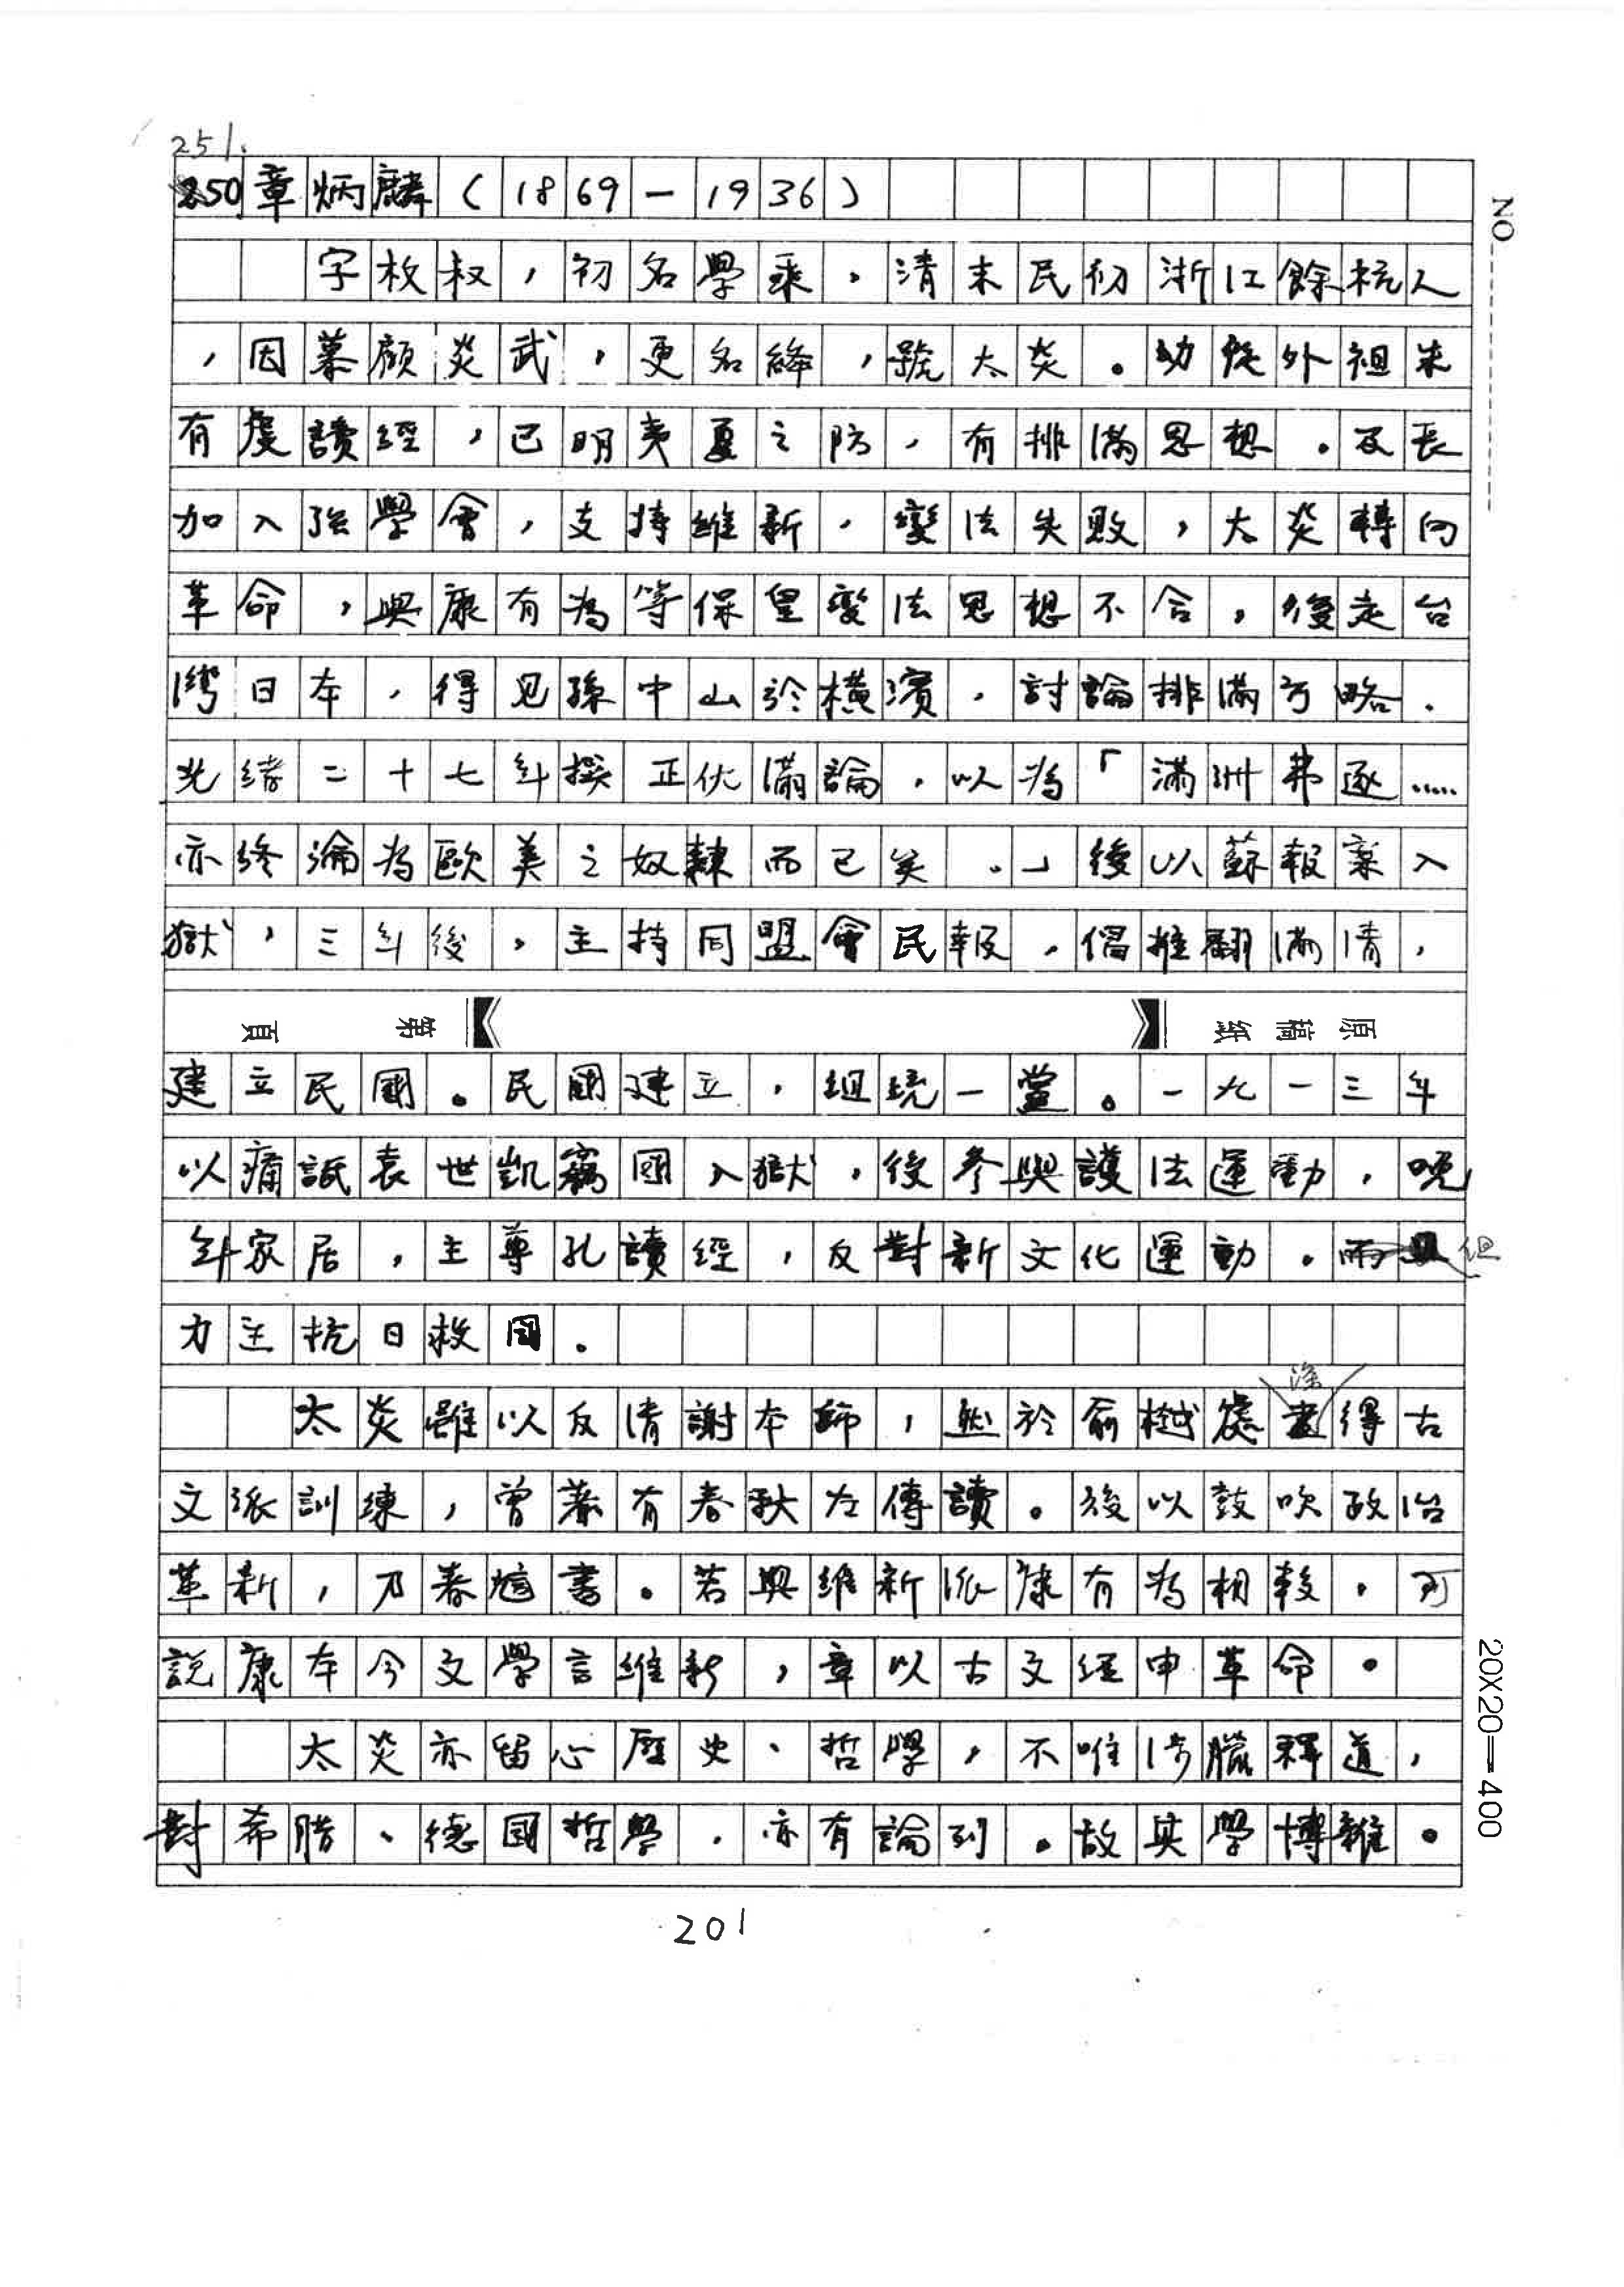 251.
250章炳麟(1869-1936)
字枚叔,初名學乘。清末民初浙江餘杭人
,因慕顧炎武,更名絳,號太炎。幼從外祖朱
有虔讀經,已明夷夏之防,有排滿思想。及長
加入強學會,支持維新,變法失敗,太炎轉向
革命,與康有為等保皇變法思想不合,後走台
灣日本,得見孫中山於橫濱,討論排滿方略。
光緒二十七年撰正仇滿論,以為「滿洲弗逐……
亦終淪為歐美之奴隸而已矣。」後以蘇報案入
獄,三年後,主持同盟會民報,倡推翻滿清,
原稿紙 第 頁
建立民國。民國建立,組統一黨。一九一三年
以痛詆袁世凱竊國入獄,後參與護法運動,晚
年家居,主尊孔讀經,反對新文化運動。但
力主抗日救國。
太炎雖以反清謝本師,然於俞樾處深得古
文派訓練,曾著有春秋左傳讀。後以鼓吹政治
革新,乃春訄書。若與維新派康有為相較,可
說康本今文學言維新,章以古文經申革命。
太炎亦留心歷史、哲學,不唯涉臘釋道,
對希腊、德國哲學,亦有論列。故其學博雜。
NO
20X20=400
201